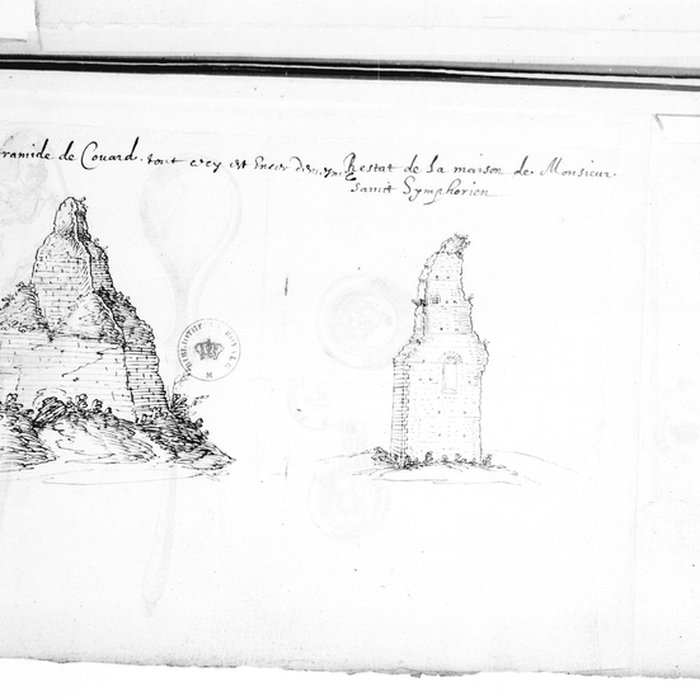 ramide de Couard. tout cecy est
Restat de la maison de Monsieur
Sainct Symphorien
BIBLIOTHECÆ REGIÆ